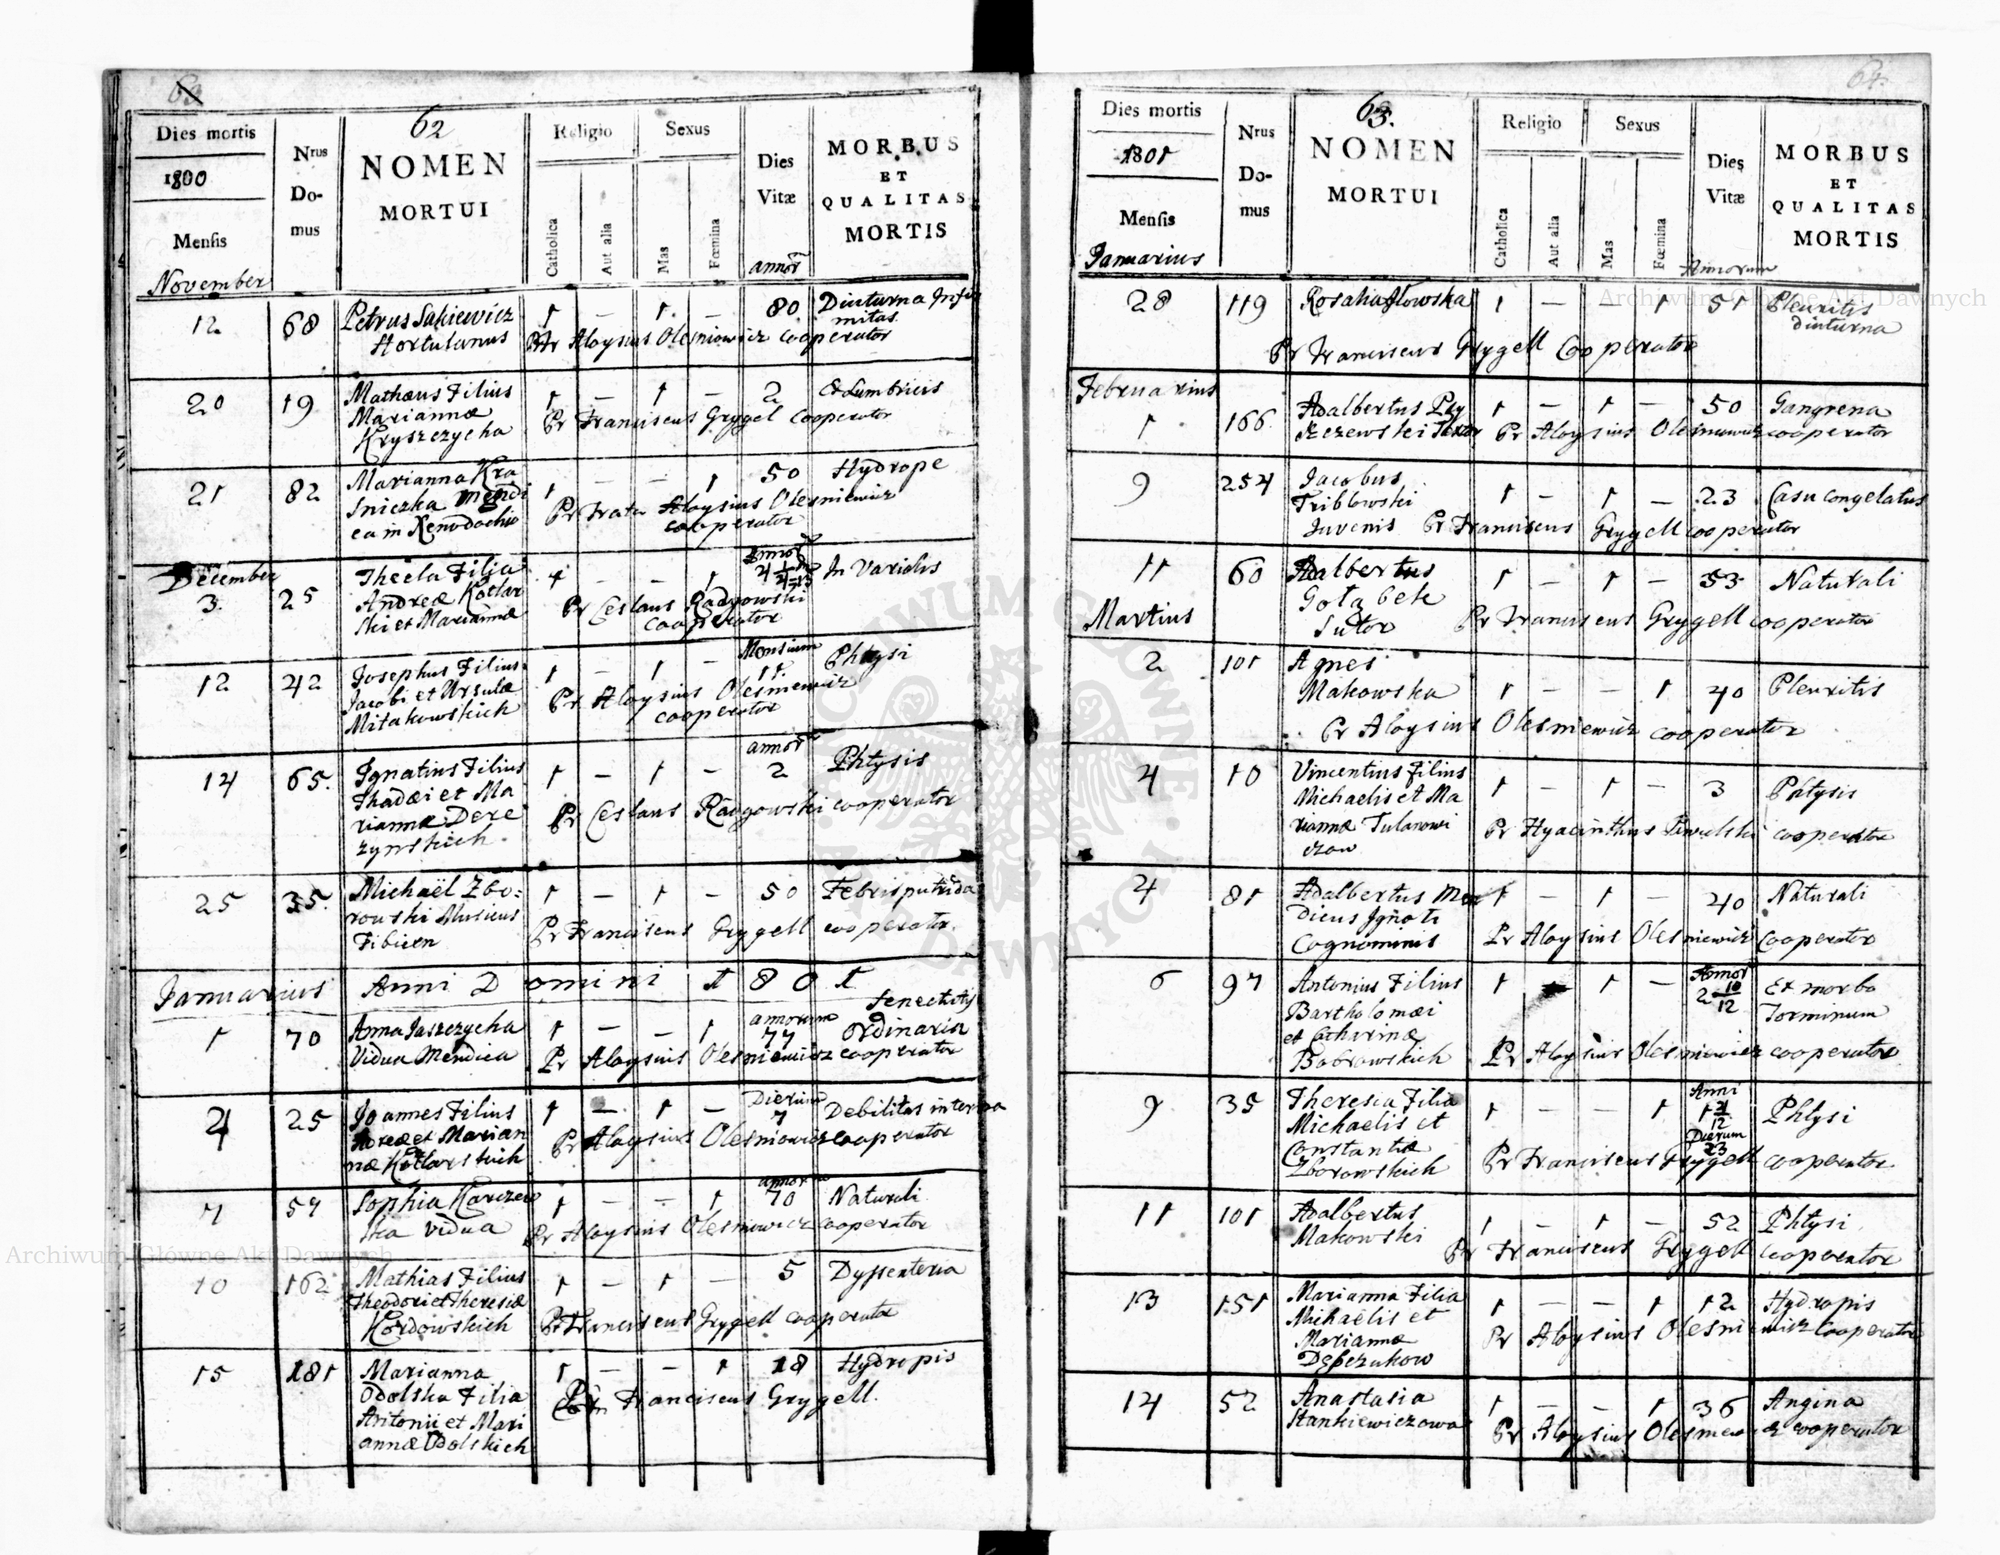 62
Dies mortis
1800
Mensis
November
Nrus Do- mus
NOMEN
MORTUI
Religio
Catholica
Aut alia
Sexus
Mas
Fœmina
Dies
Vitæ
annor
MORBUS
ET
QUALITAS
MORTIS
12 68 Petrus Sakiewicz 1 — 1 — 80 Diuturna Infir
mitas
Hortulanus Pr Aloysius Olesniewicz cooperator
20 19 Mathæus Filius 1 — 1 — 2 Ex Lumbricis
Mariannæ Pr Franciscus Grygel cooperator
Kryszczycha
21 82 Marianna Kra 1 — — 1 50 Hydrope
sniczka Mendi Pr Frater Aloysius Olesniewicz
ca in Xenodochio cooperator
December
3 25 Thecla Filia 1 — — 1 In Variolis
Andreæ Kotlar Pr Ceslaus Radgowski
ski et Mariannæ cooperator
12 42 Josephus Filius 1 — 1 — Mensium 11 Phtysi
Jacobi et Ursulæ Pr Aloysius Olesniewicz
Mitakowskich cooperator
14 65. Ignatius Filius 1 — 1 — annor 2 Phtysis
Thadæi et Ma Pr Ceslaus Radgowski cooperator
riannæ Dere
zynskich
25 35. Michaël Zbo- 1 — 1 — 50 Febris putrida
rowski Musicus Pr Franciscus Grygell cooperator
Tibicen
Januarius Anni Domini 1801
1 70 Anna Jaszczycha 1 — — 1 annorum 77 Senectutis
ordinaria
Vidua Mendica Pr Aloysius Olesniewicz cooperator
4 25 Joannes Filius 1 — 1 — Dierum 7 Debilitas interna
Andreæ et Marian Pr Aloysius Olesniewicz cooperator
næ Kotlarskich
7 57 Sophia Karczew 1 — — 1 annor 70 Naturali
ska vidua Pr Aloysius Olesniewicz cooperator
10 162 Mathias Filius 1 — 1 — 5 Dyssenteria
Theodori et Theresiæ Pr Franciscus Grygell cooperator
Kordowskich
15 181 Marianna 1 — — 1 18 Hydropis
Odolska Filia Pr Franciscus Grygell.
Antonii et Mari
annæ Odolskich
64.
63.
Dies mortis
1801
Mensis
Januarius
Nrus Do- mus
NOMEN
MORTUI
Religio
Catholica
Aut alia
Sexus
Mas
Fœmina
Dies
Vitæ
Annorum
MORBUS
ET
QUALITAS
MORTIS
28 119 Rosalia 1 — — 1 51 Pleuritis
diuturna
Pr Franciscus Grygell Cooperator
Februarius
1 166 Adalbertus 1 — 1 — 50 Gangrena
Pr Aloysius Olesniewicz cooperator
9 254 Jacobus
Triblowski 1 — 1 — 23 Casu congelatus
Juvenis Pr Franciscus Grygell cooperator
11 60 Adalbertus 1 — 1 — 53 Naturali
Gołabek
Sutor Pr Franciscus Grygell cooperator
Martius
2 101 Agnes
Makowska 1 — — 1 40 Pleuritis
Pr Aloysius Olesniewicz cooperator
4 10 Vincentius Filius 1 — 1 — 3 Phtysis
Michaelis et Ma
riannæ Tulanowi Pr Hyacinthus cooperator
czow
4 81 Adalbertus Men 1 — 1 — 40 Naturali
dicus Ignoti
Cognominis Pr Aloysius Olesniewicz cooperator
6 97 Antonius Filius 1 — 1 — Annor 2 10/12 Ex morbo
Bartholomæi Torminum
et Catharinæ
Bobrowskich Pr Aloysius Olesniewicz cooperator
9 35 Theresia Filia 1 — — 1 Anni 1 4/12 Dierum 23 Phtysi
Michaelis et
Constantiæ Pr Franciscus Grygell cooperator
Zborowskich
11 101 Adalbertus 1 — 1 — 52 Phtysi
Makowski Pr Franciscus Grygell cooperator
13 151 Marianna Filia 1 — — 1 12 Hydropis
Michaëlis et Pr Aloysius Olesniewicz Cooperator
Mariannæ
14 52 Anastasia 1 — — 1 36 Angina
Stankiewiczowa Pr Aloysius Olesniewicz cooperator
Archiwum Główne Akt Dawnych
Archiwum Główne Akt Dawnych
ARCHIWUM GŁÓWNE AKT DAWNYCH